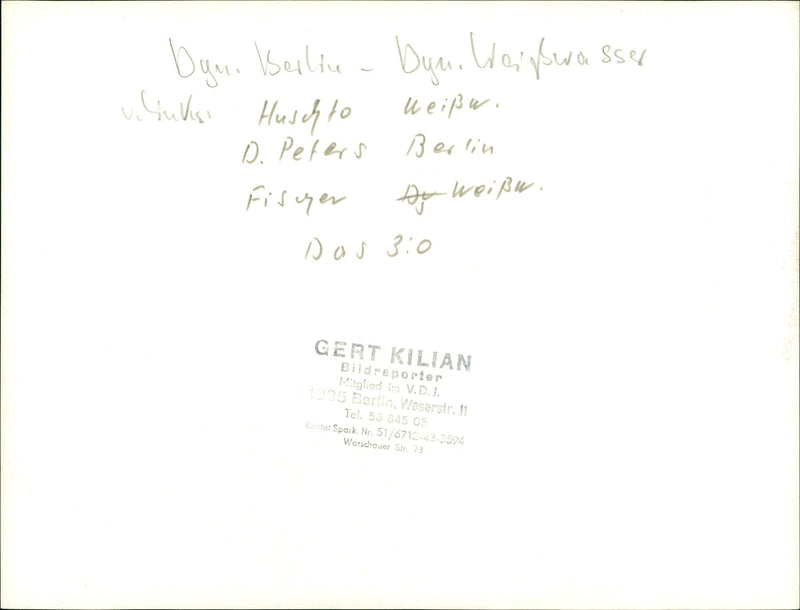 Dyn. Berlin - Dyn. Weißwasser
v. links: Huschto Weißw.
D. Peters Berlin
Fischer Dy Weißw.
Das 3:0
GERT KILIAN
Bildreporter
Mitglied im V.D.J.
1035 Berlin, Weserstr. 11
Tel. 58 845 05
Konto: Spark. Nr. 51/6712-43-3594
Warschauer Str. 73